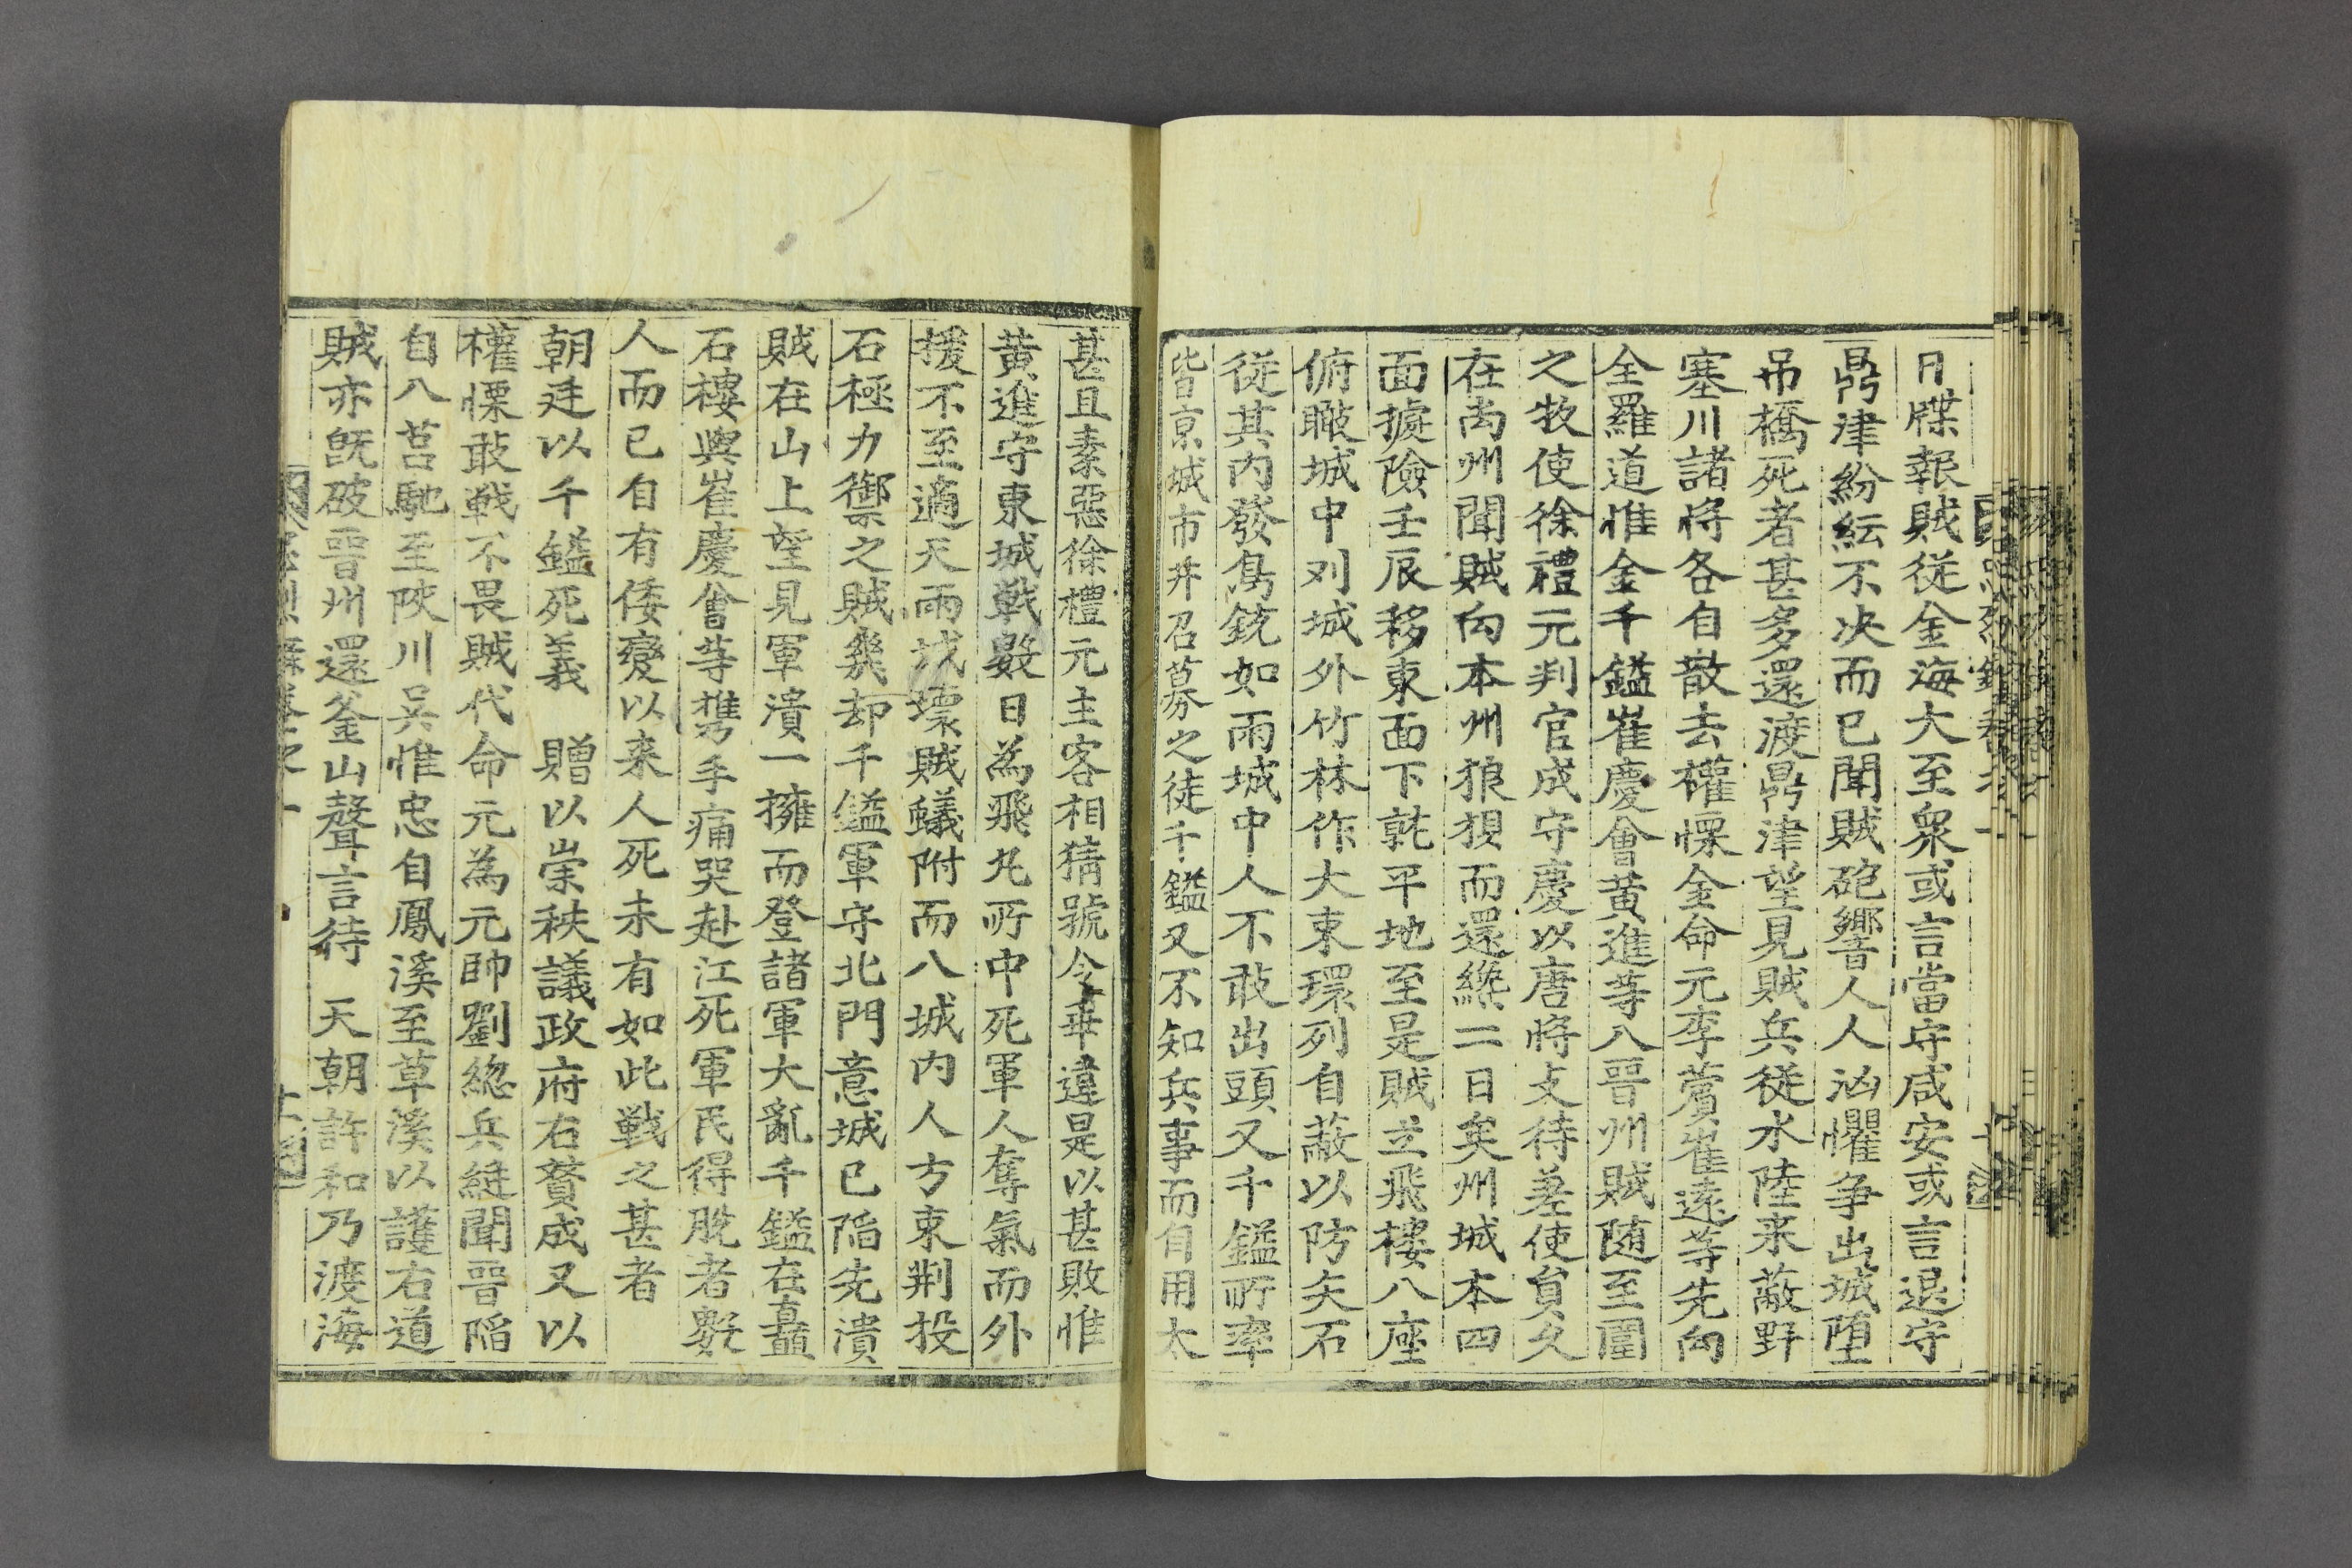 日牒報賊従金海大至衆或言當守咸安或言退守
鼎津紛紜不决而已聞賊砲響人人汹懼争出城堕
吊橋死者甚多還渡鼎津望見賊兵従水陸来蔽野
塞川諸将各自散去權慄金命元李薲崔遠等先向
全羅道惟金千鎰崔慶會黄進等八晋州賊随至圍
之牧使徐禮元判官成守慶以唐將支待差使負久
在尚州聞賊向本州狼狽而還纔二日矣州城本四
面據險壬辰移東面下就平地至是賊立飛樓八座
俯瞰城中刈城外竹林作大束環列自蔽以防矢石
従其内發鳥銃如雨城中人不敢出頭又千鎰所率
皆京城市井召募之徒千鎰又不知兵事而自用太
甚且素惡徐禮元主客相猜號令乖違是以甚敗惟
黄進守東城戦數日為飛丸所中死軍人奪氣而外
援不至適天雨城壞賊蟻附而八城内人方束荆投
石極力禦之賊幾却千鎰軍守北門意城已陷先潰
賊在山上望見軍潰一擁而登諸軍大亂千鎰在矗
石樓與崔慶會等携手痛哭赴江死軍民得脱者數
人而已自有倭變以来人死未有如此戦之甚者
朝廷以千鎰死義 贈以崇秩議政府右贊成又以
權慄敢戦不畏賊代命元為元帥劉総兵綎聞晋陷
自八莒馳至陜川吴惟忠自鳳溪至草溪以護右道
賊亦旣破晋州還釜山聲言待 天朝許和乃渡海